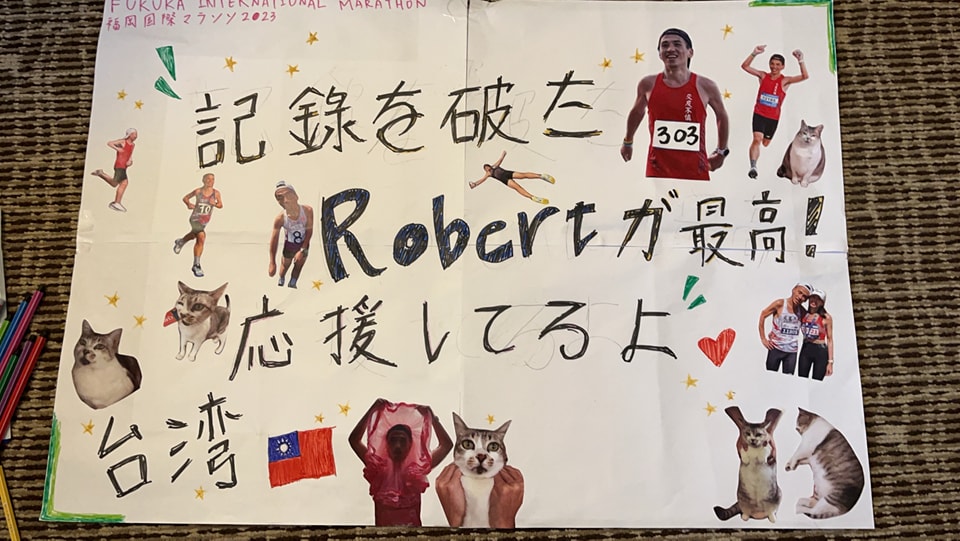 FUKUKA INTERNATIONAL MARATHON
福岡国際マラソン2023
記錄を破た
Robertが最高!
応援してるよ
台湾
303